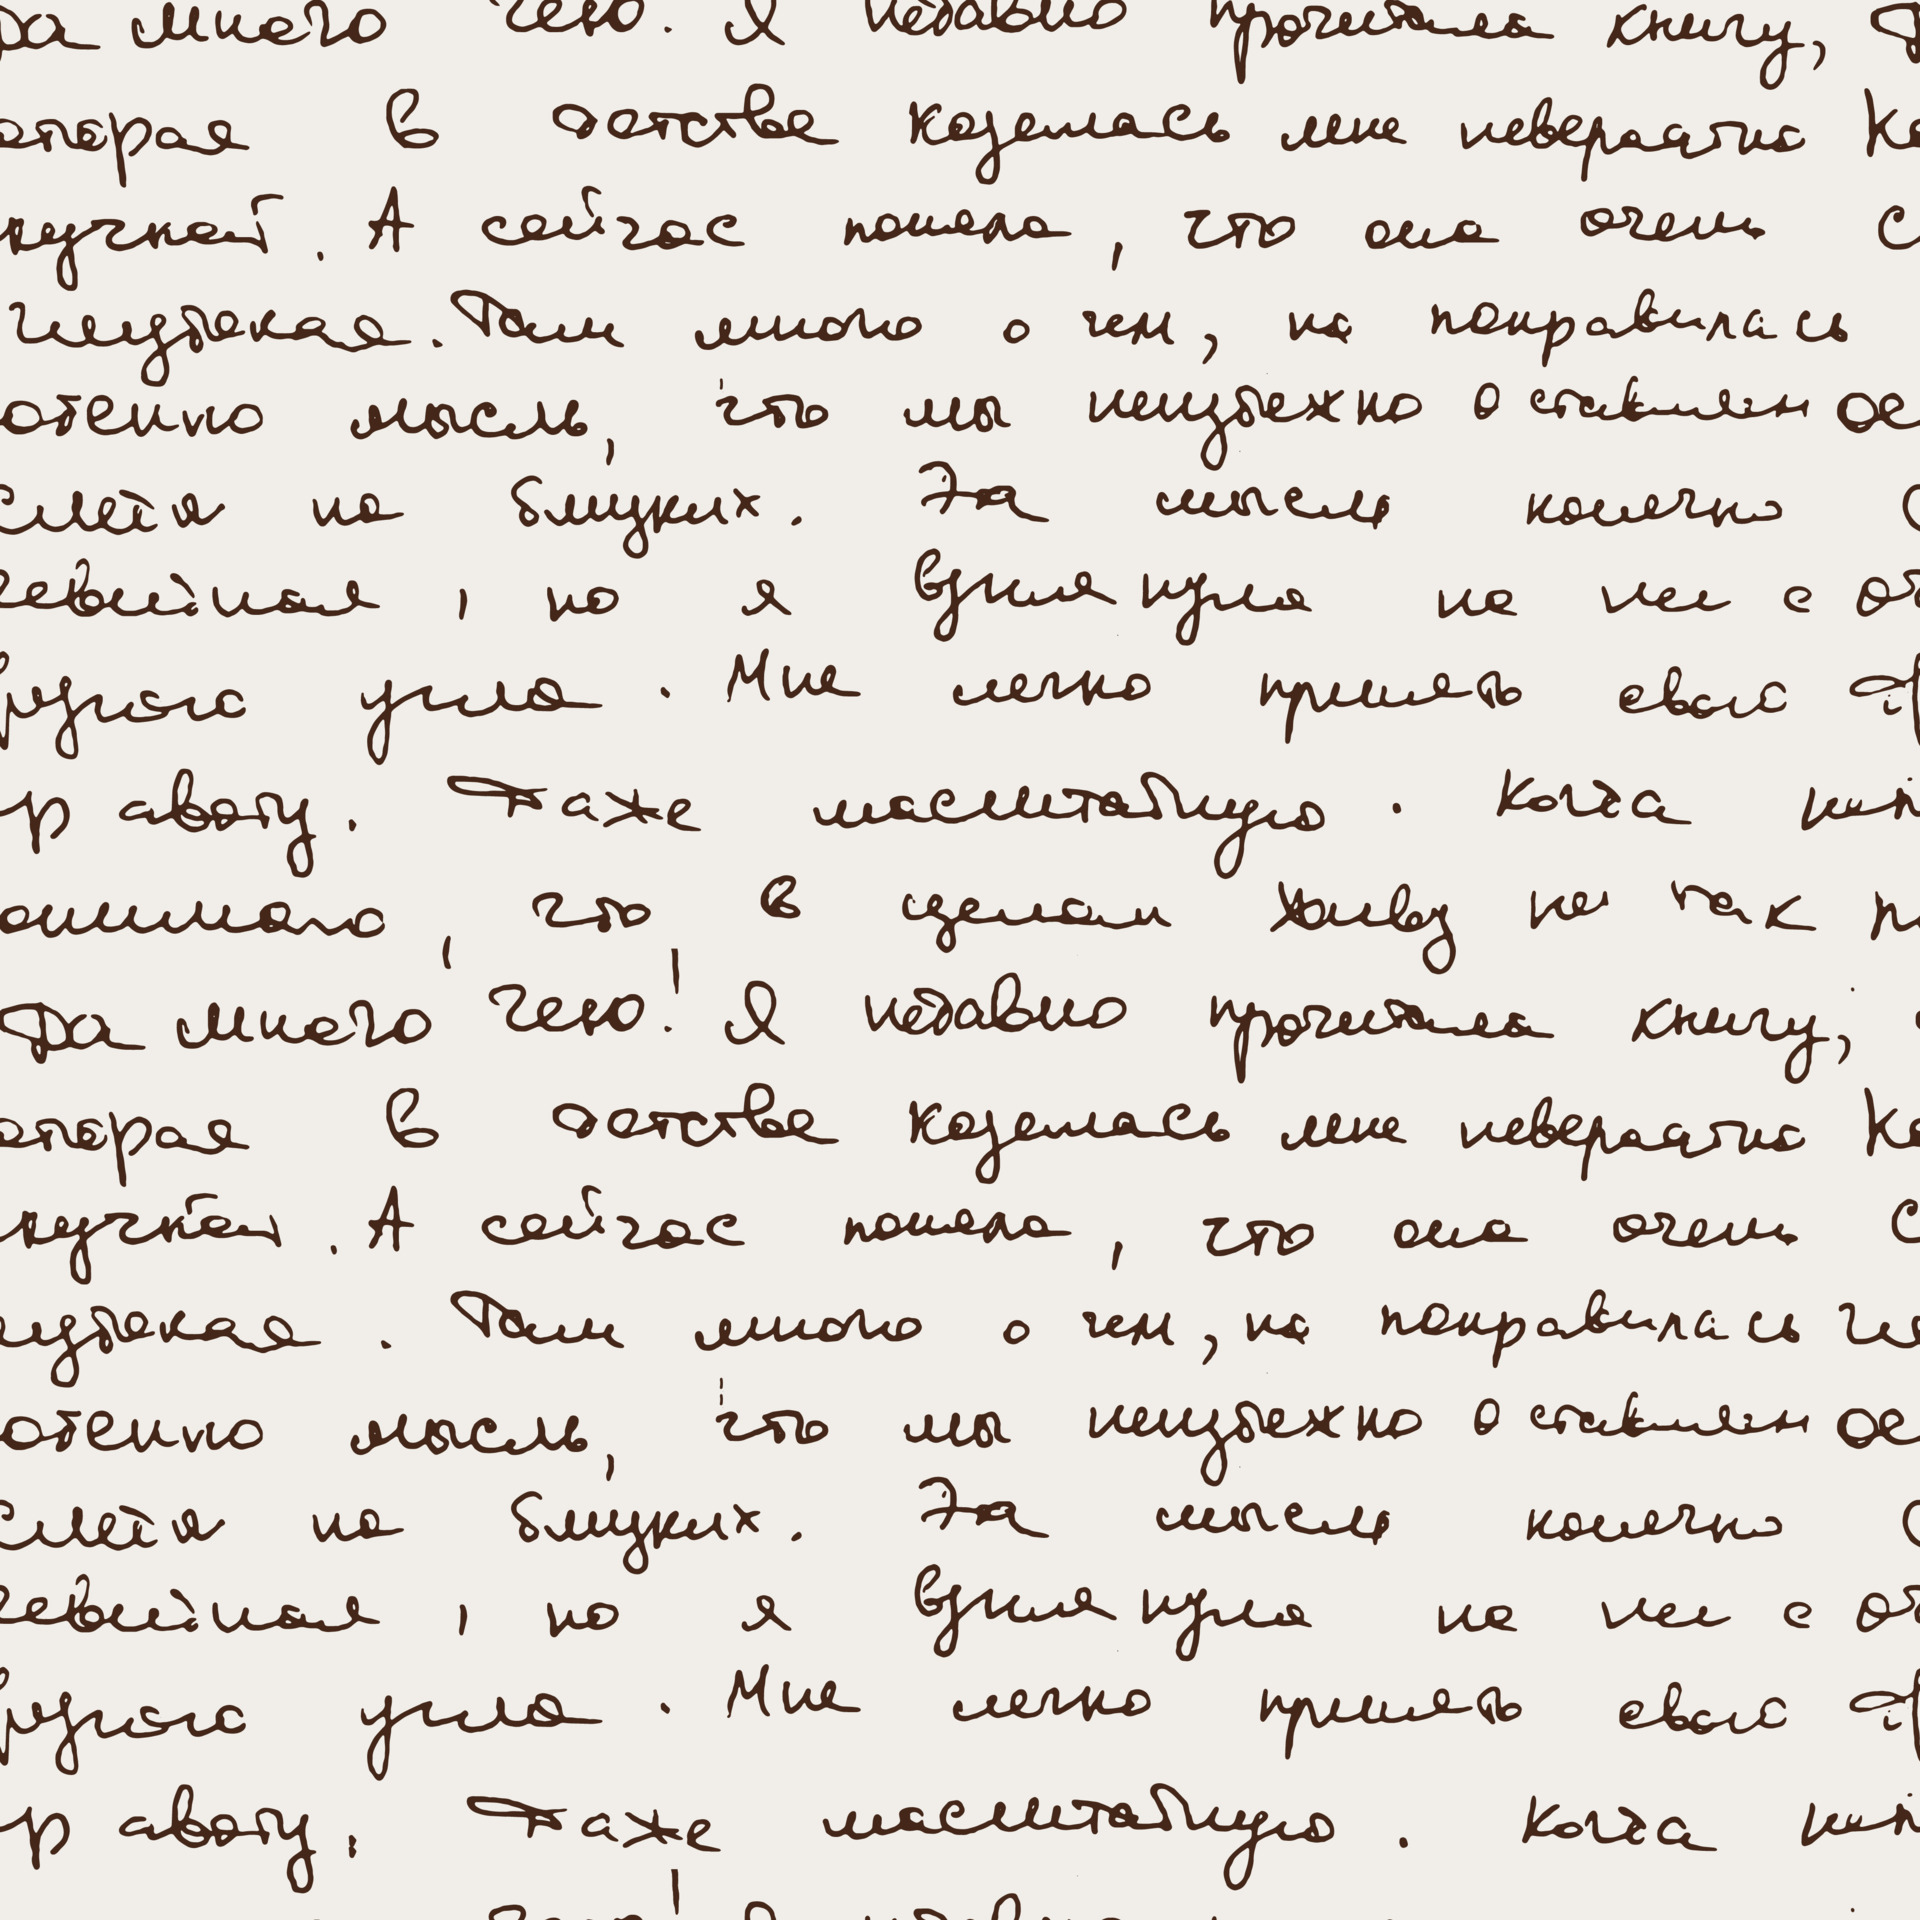 да много чего. Я недавно прочитала книгу,
оторая в детстве казалась мне невероятно
кучной. А сейчас поняла, что она очень
глубокая. Там много о чем, но понравилась
отенно мысль, что мы неизбежно оставляем
на близких. Эта мысль конечно
но я взглянула на нее с
другого угла. Мне легко принять свою
правоту. Даже масштабную. Когда
онимаю, что в целом живу не так
да много чего! Я недавно прочитала книгу,
оторая в детстве казалась мне невероятно
кучной. А сейчас поняла, что она очень
лубокая. Там много о чем, но понравилась
отенно мысль, что мы неизбежно оставляем
на близких. Эта мысль конечно
но я взглянула на нее с
другого угла. Мне легко принять свою
Даже масштабную. Когда